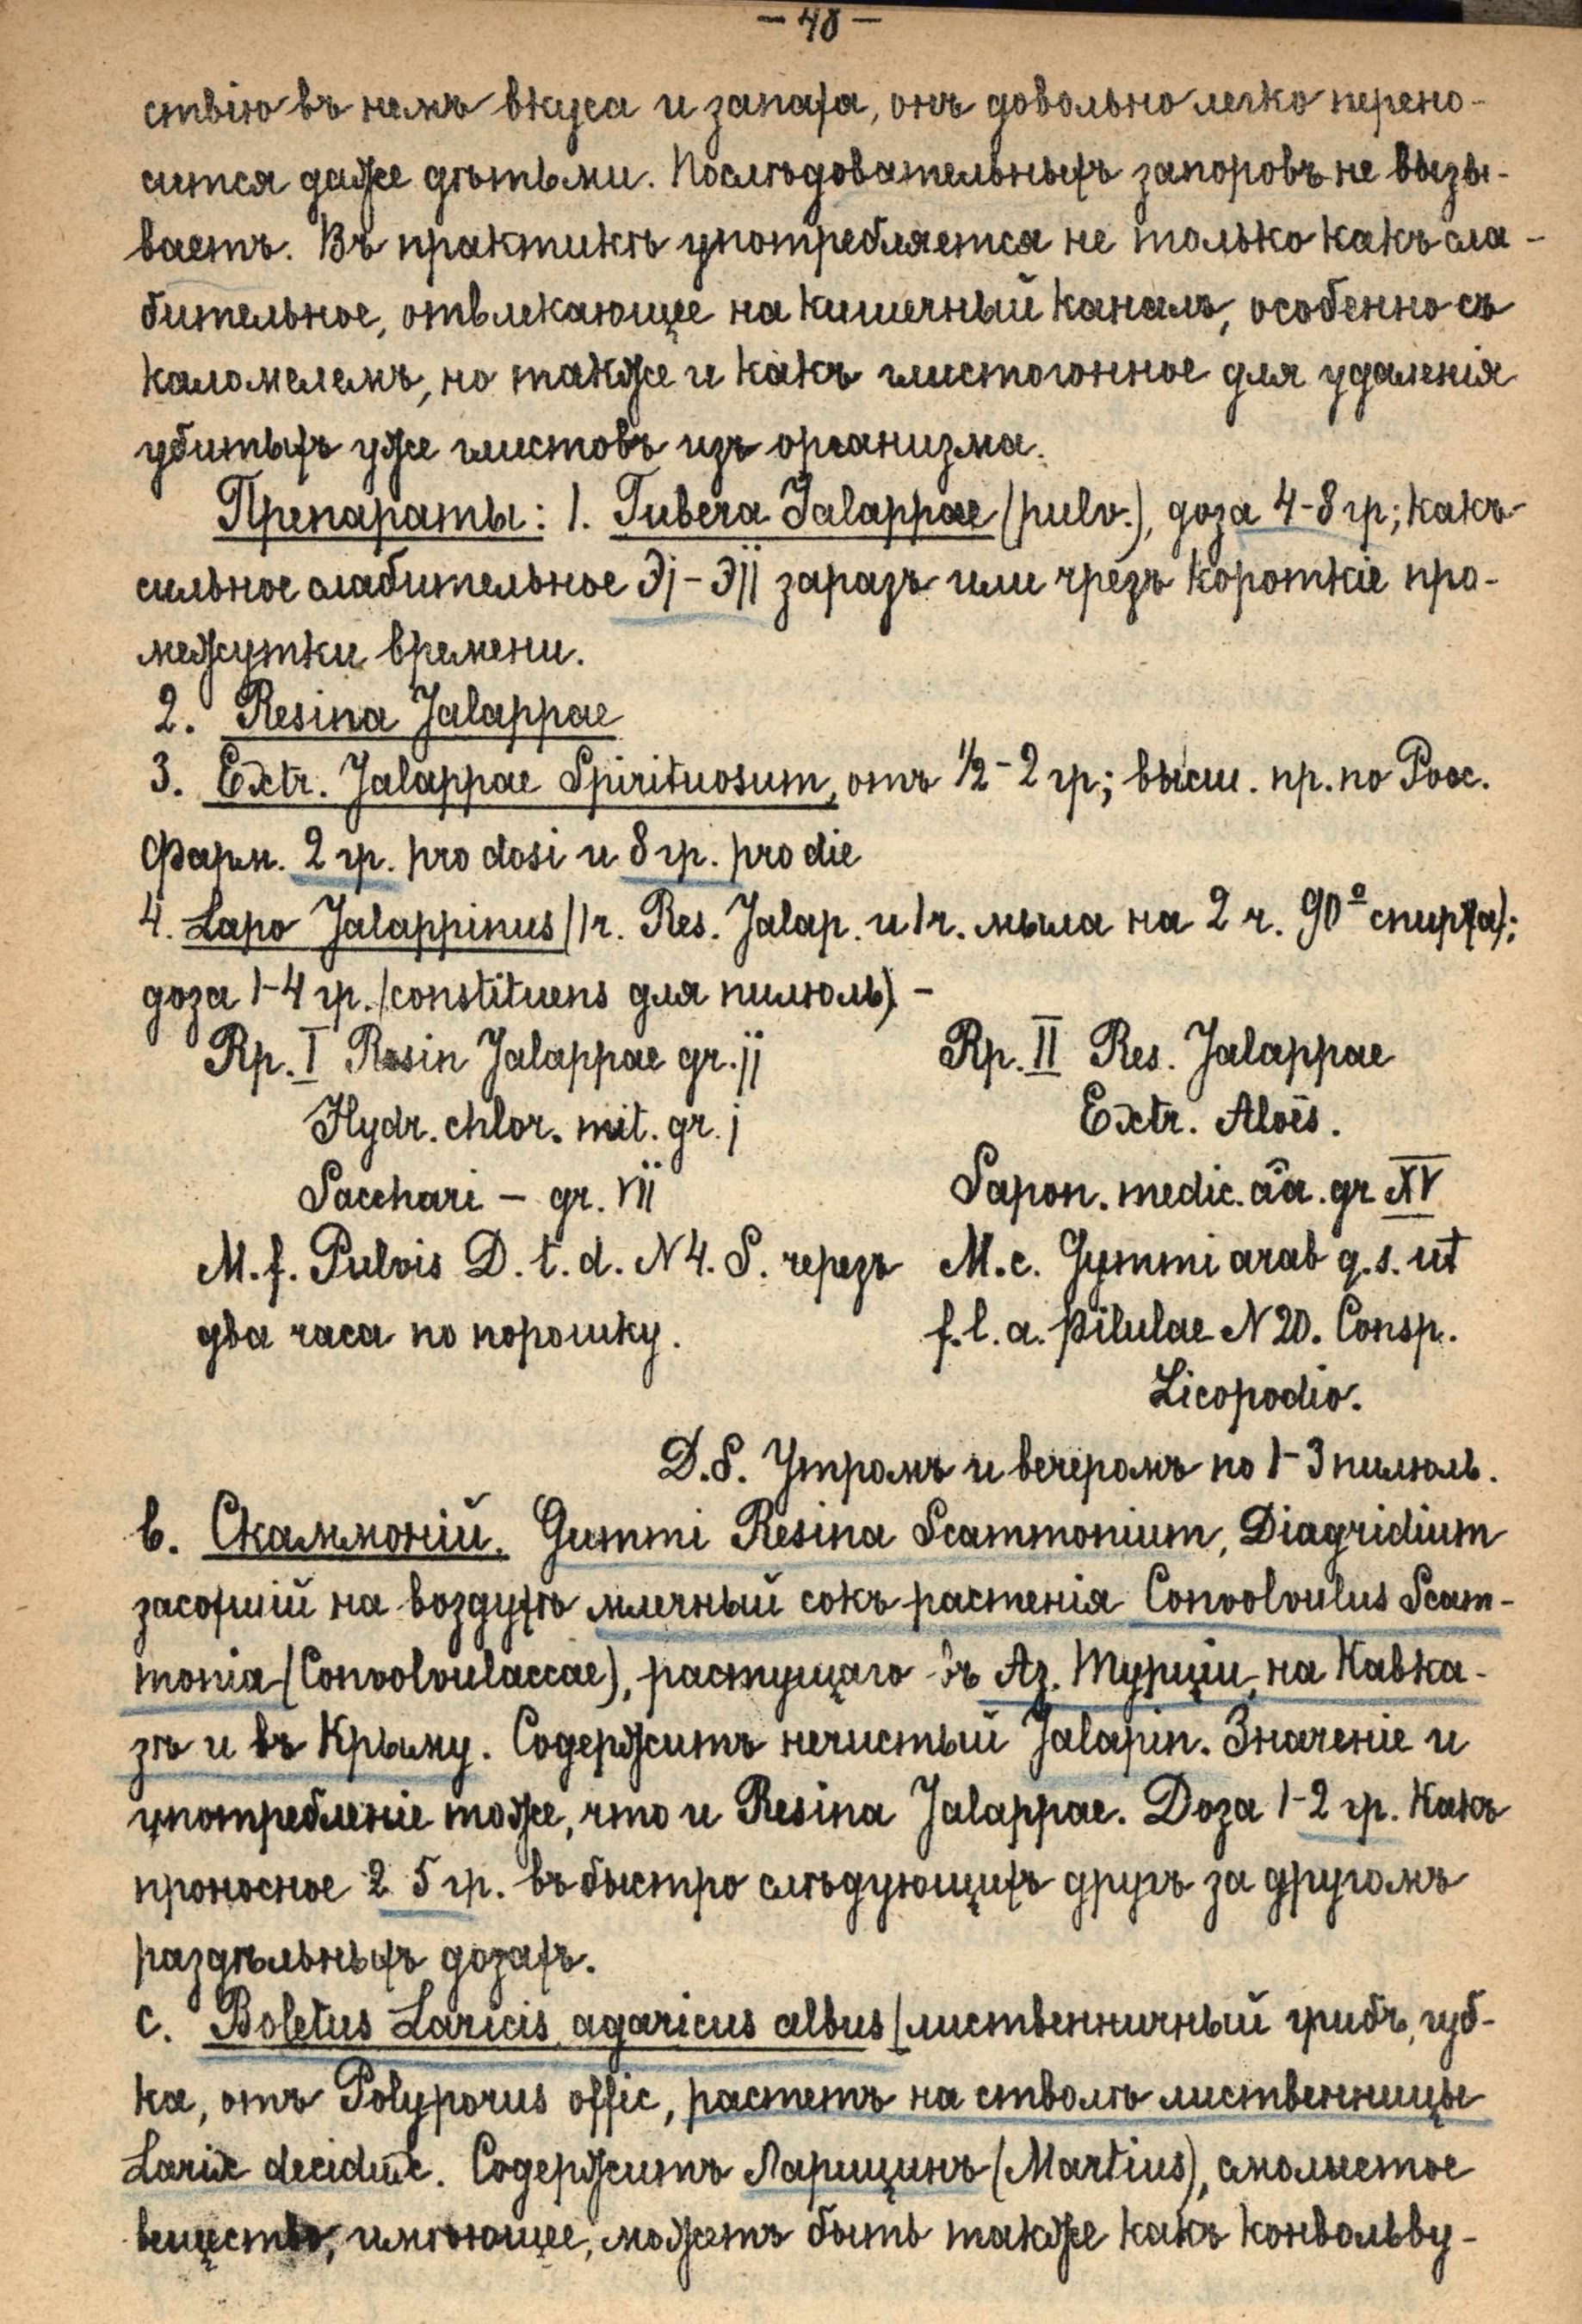 — 48 —
ствію въ немъ вкуса и запаха, онъ довольно легко перено-
сится даже дѣтьми. Послѣдовательныхъ запоровъ не вызы-
ваетъ. Въ практикѣ употребляется не только какъ сла-
бительное, отвлекающее на кишечный каналъ, особенно съ
каломелемъ, но также и какъ глистогонное для удаленія
убитыхъ уже глистовъ изъ организма.
Препараты: 1. Tubera Jalappae (pulv.), доза 4-8 гр; какъ
сильное слабительное ℈j - ℈jj заразъ или чрезъ короткіе про-
межутки времени.
2. Resina Jalappae
3. Extr. Jalappae Spirituosum, отъ ½ - 2 гр; высш. пр. по Росс.
Фарм. 2 гр. pro dosi и 8 гр. pro die
4. Sapo Jalappinus (1 ч. Res. Jalap. и 1 ч. мыла на 2 ч. 90° спирта);
доза 1-4 гр. (constituens для пилюль) -
Rp. I Resin Jalappae gr. jj
Hydr. chlor. mit. gr. j
Sacchari - gr. VII
M. f. Pulvis D. t. d. N 4. S. черезъ
два часа по порошку.
Rp. II Res. Jalappae
Extr. Aloës.
Sapon. medic. aa. gr XV
M. c. Gymmi arab q. s. ut
f. l. a. pilulae N 20. Consp.
Licopodio.
D. S. Утромъ и вечеромъ по 1-3 пилюль.
b. Скаммоній. Gummi Resina Scammonium, Diagridium
засохшій на воздухѣ млечный сокъ растенія Convolvulus Scam-
monia (Convolvulaceae), растущаго въ Аз. Турціи, на Кавка-
зѣ и въ Крыму. Содержитъ нечистый Jalapin. Значеніе и
употребленіе тоже, что и Resina Jalappae. Доза 1-2 гр. Какъ
проносное 2 5 гр. въ быстро слѣдующихъ другъ за другомъ
раздѣльныхъ дозахъ.
c. Boletus Laricis, agaricus albus (лиственничный грибъ, губ-
ка, отъ Polyporus offic, растетъ на стволѣ лиственницы
Larix deciduae. Содержитъ Ларицинъ (Martius), смолистое
вещество, имѣющее, можетъ быть также какъ конвольву-